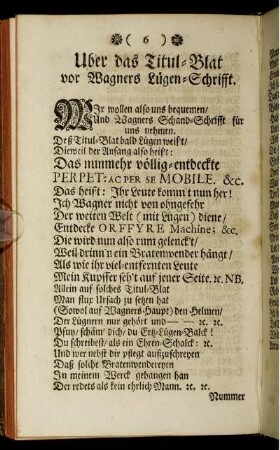 ( 6 )
Uber das Titul-Blat
vor Wagners Lügen-Schrifft.
WIr wollen also uns bequemen/
Und Wagners Schand-Schrifft für
uns nehmen.
Deß Titul-Blat bald Lügen weist/
Dieweil der Anfang also heist:
Das nunmehr völlig-entdeckte
PERPET: AC PER SE MOBILE. &c.
Das heist: Ihr Leute komm't nun her!
Ich Wagner nicht von ohngefehr
Der weiten Welt (mit Lügen) diene/
Entdecke ORFFYRE Machine; &c.
Die wird nun also rum gelenckt/
Weil drinn'n ein Bratenwender hängt/
Als wie ihr viel-entfernten Leute
Mein Kupffer seh't auf jener Seite. ꝛc. NB.
Allein auf solches Titul-Blat
Man flux Ursach zu setzen hat
(Sowol auf Wagners-Haupt) den-Helmen/
Der Lügnern nur gehört und — — ꝛc. ꝛc.
Pfuy/ schäm' dich/ du Ertz-Lügen-Balck!
Du schreibest/ als ein Ehren-Schalck: ꝛc.
Und wer nebst dir pflegt außzuschreyen
Daß solche Bratenwendereyen
In meinem Werck gehangen han
Der redets als kein ehrlich Mann. ꝛc. ꝛc.
Nummer